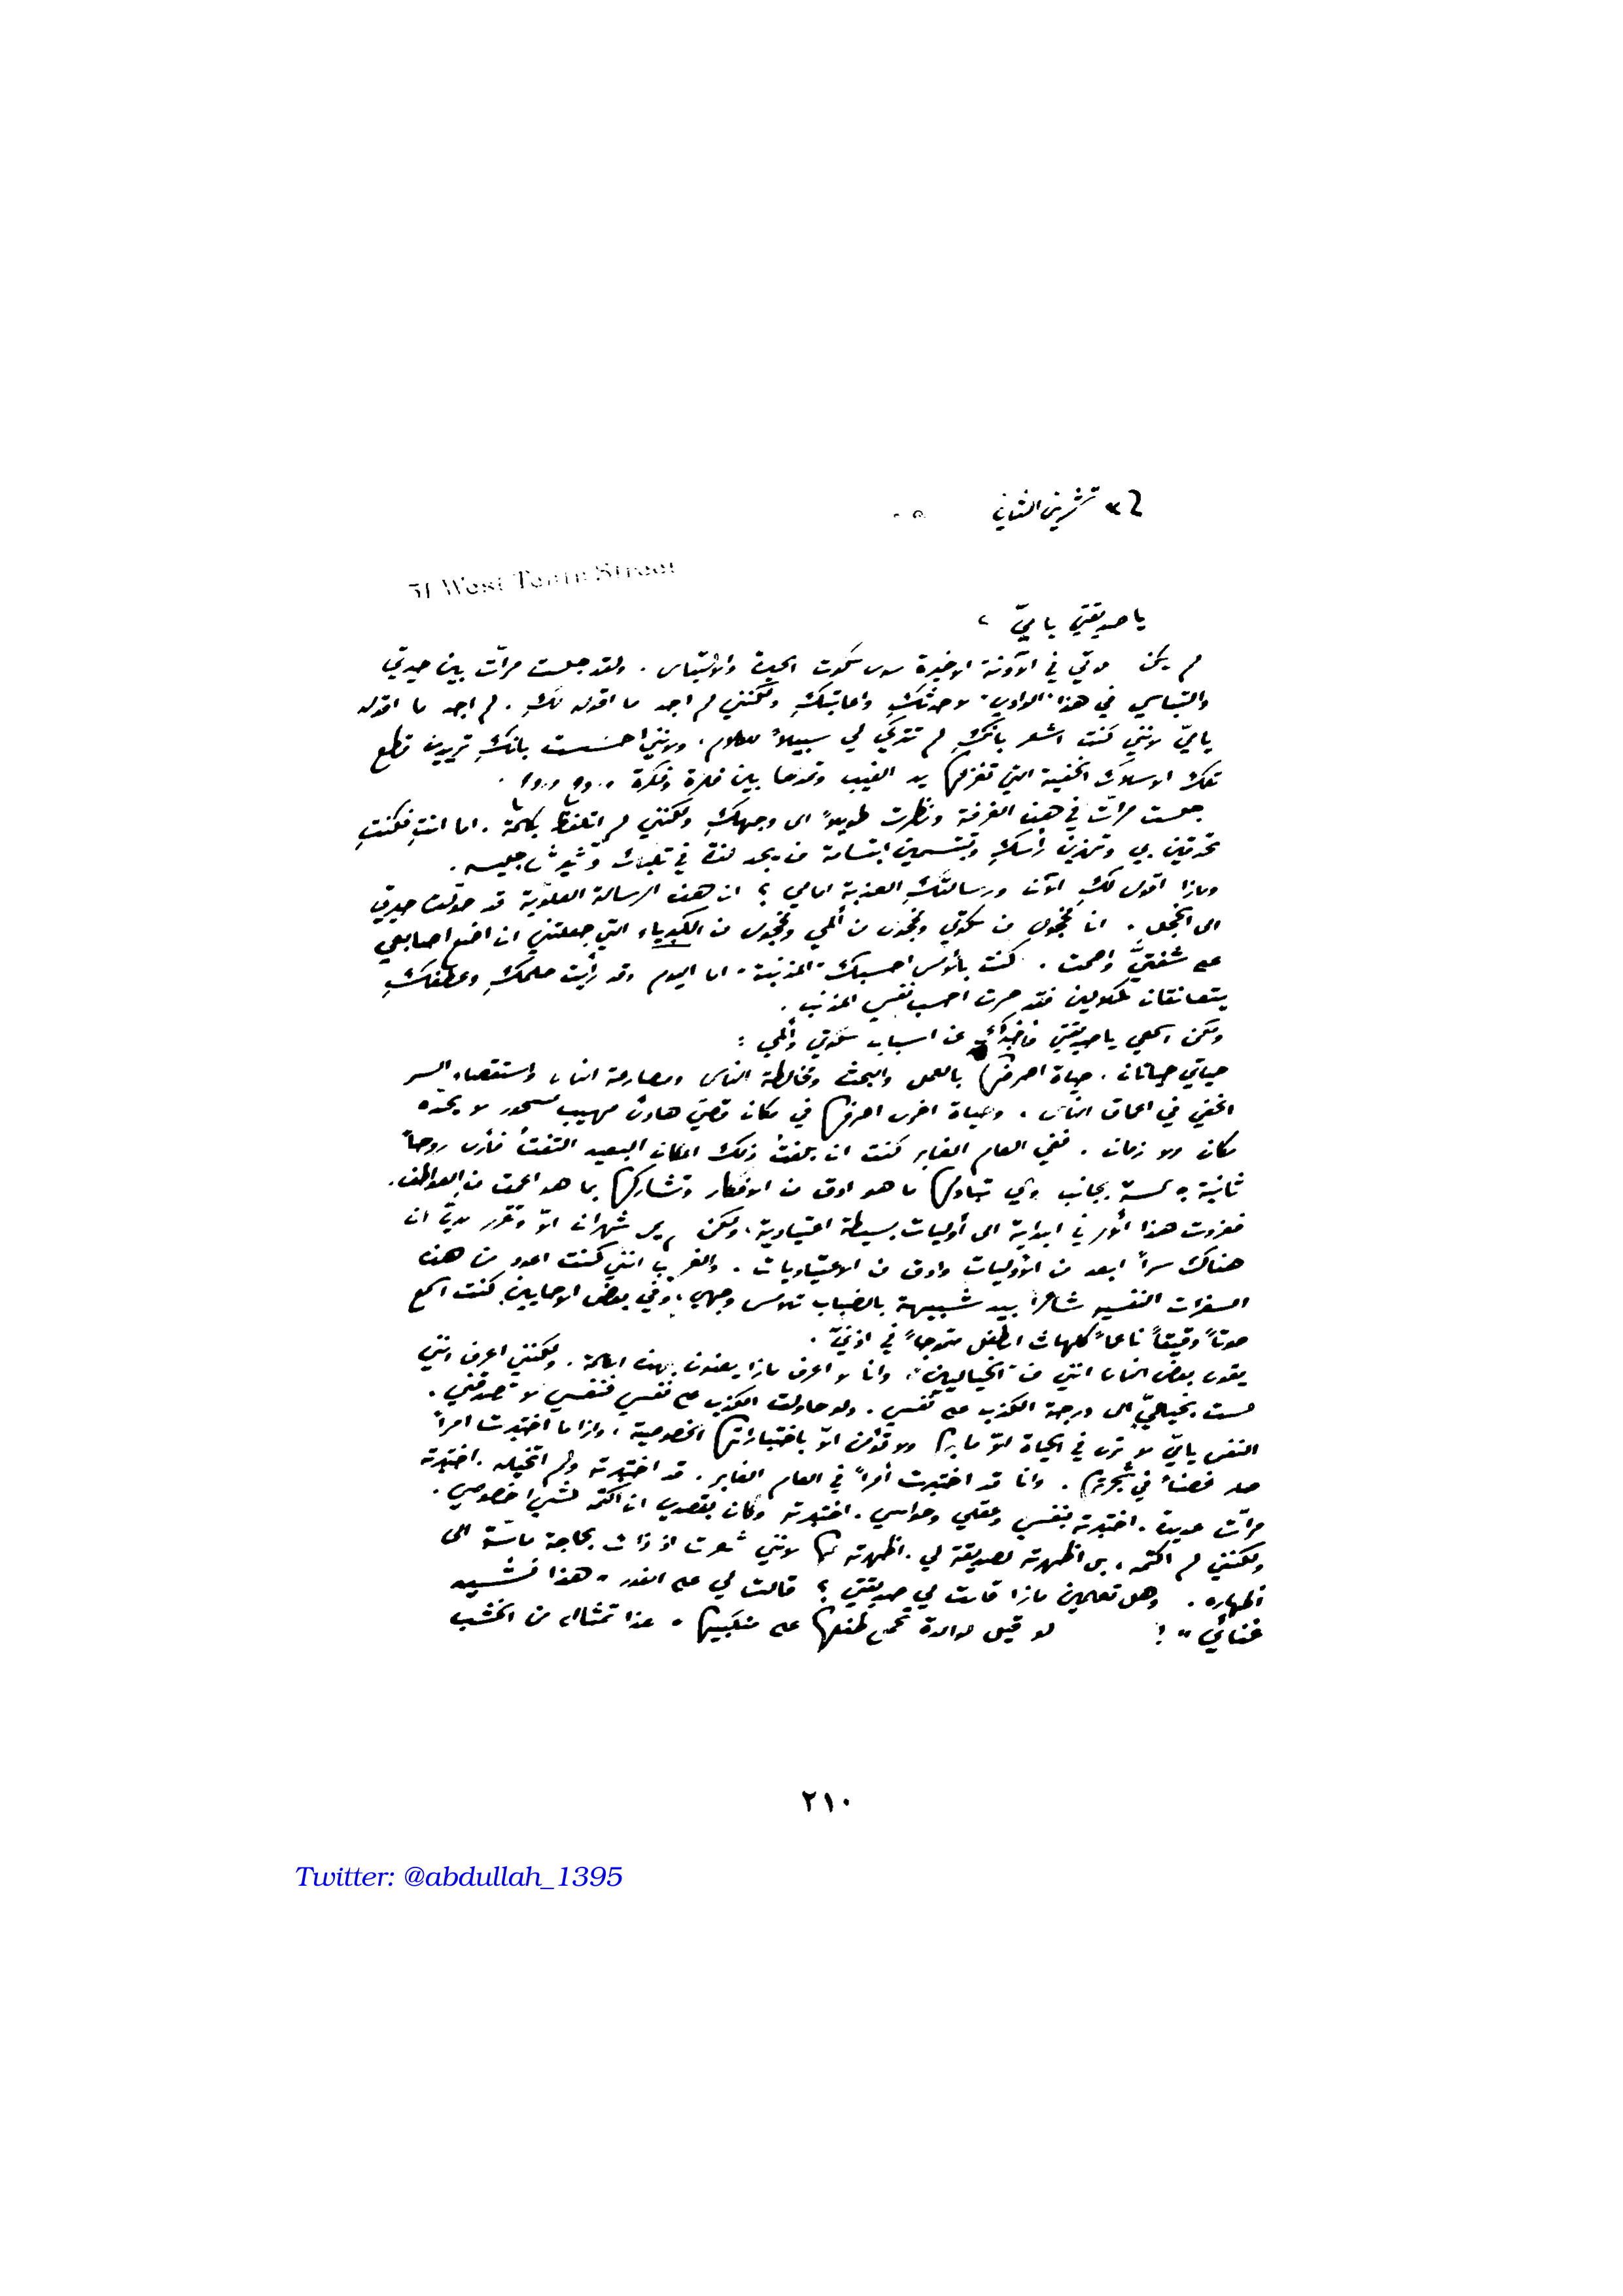 تشرين الثاني
51 West Tenth Street
يا صديقتي يا ميّ ،
لم يكن سكوتي في الآونة الاخيرة سوى سكوت الحيرة والالتباس . ولقد جلست مرّات بين حيرتي
والتباسي في هذا "الوادي" لاحدثكِ واعاتبكِ ولكنني لم اجد ما اقوله لكِ . لم اجد ما اقوله
يا ميّ لانني كنت اشعر بانكِ لم تتركي لي سبيلاً للكلام . ولانني احسست بانكِ تريدين قطع
تلك الاسلاك الخفية التي تغزلها يد الغيب وتمدها بين فكرة وفكرة وروح وروح .
جلست مرّات في هذه الغرفة ونظرت طويلاً الى وجهكِ ولكنني لم اتلفظ بكلمة . اما انتِ فكنتِ
تحدقين بي وتهزين رأسكِ وتبتسمين ابتسامة من يجد لذة في تلبك وتشويش جليسه .
وماذا اقول لكِ الآن ورسالتكِ العذبة امامي ؟ ان هذه الرسالة العلوّية قد حوّلت حيرتي
الى الخجل . انا مخجول من سكوتي ومخجول من ألمي ومخجول من الكبرياء التي جعلتني ان اضع اصابعي
على شفتيّ واصمت . كنت بالأمس احسبك "المذنبة" اما اليوم وقد رأيت حلمكِ وعطفكِ
يتعانقان كملاكين فقد صرت احسب نفسي المذنب .
ولكن اسمعي يا صديقتي فاخبركِ عن اسباب سكوتي وألمي :
حياتي حياتان . حياة اصرفها بالعمل والبحث ومخالطة الناس ومصارعة الناس واستقصاء السر
الخفي في اعماق الناس . وحياة اخرى اصرفها في مكان قصيّ هادئ مهيب مسحور لا يحدّه
مكان ولا زمان . ففي العام الغابر كنت ان بلغت ذلك المكان البعيد التفتُّ فأرى روحاً
ثانية جالسة بجانب روحي تبادلها ما هو ادق من الافكار وتشاركها بما هو اعمق من العواطف .
فعزوت هذا الأمر في البداية الى أوليات بسيطة اعتيادية ، ولكن لم يمر شهران الاّ وتقرر لديّ ان
هناك سراً ابعد من الأوليات وادق من الاعتياديات . والغريب انني كنت اعود من هذه
السفرات النفسيه شاعراً بيد شبيهة بالضباب تلامس وجهي ، وفي بعض الاحايين كنت اسمع
صوتاً دقيقاً ناعماً كلهاث الطفل متموجاً في اذنيّ .
يقول بعض الناس انني من "الخياليين" ، وانا لا اعرف ماذا يعنون بهذه الكلمة . ولكنني اعرف انني
لست بخياليّ الى درجة الكذب على نفسي . ولو حاولت الكذب على نفسي فنفسي لا تصدقني .
النفس يا ميّ لا ترى في الحياة الاّ ما بها ولا تؤمن الاّ باختباراتها الخصوصية ، واذا ما اختبرت امراً
صار غصناً في شجرتها . وانا قد اختبرت أمراً في العام الغابر . قد اختبرته ولم اتخيله . اختبرته
مرّات عديدة . اختبرته بنفسي وعقلي وحواسي . اختبرته وكان بقصدي ان اكتمه كشيء خصوصي .
ولكنني لم اكتمه ، بل اظهرته لصديقة لي . اظهرته لها لانني شعرت اذ ذاك بحاجة ماسّة الى
اظهاره . وهل تعلمين ماذا قالت لي صديقتي ؟ قالت لي على الفور "هذا نشيد
غنائي" ! لو قيل لوالدة تحمل طفلها على منكبيها "هذا تمثال من الخشب
٢١٠
Twitter: @abdullah_1395